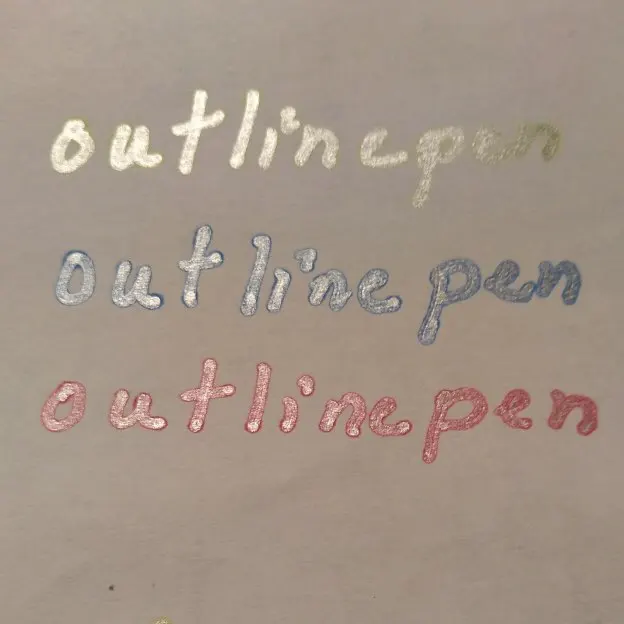 outline pen
outline pen
outline pen